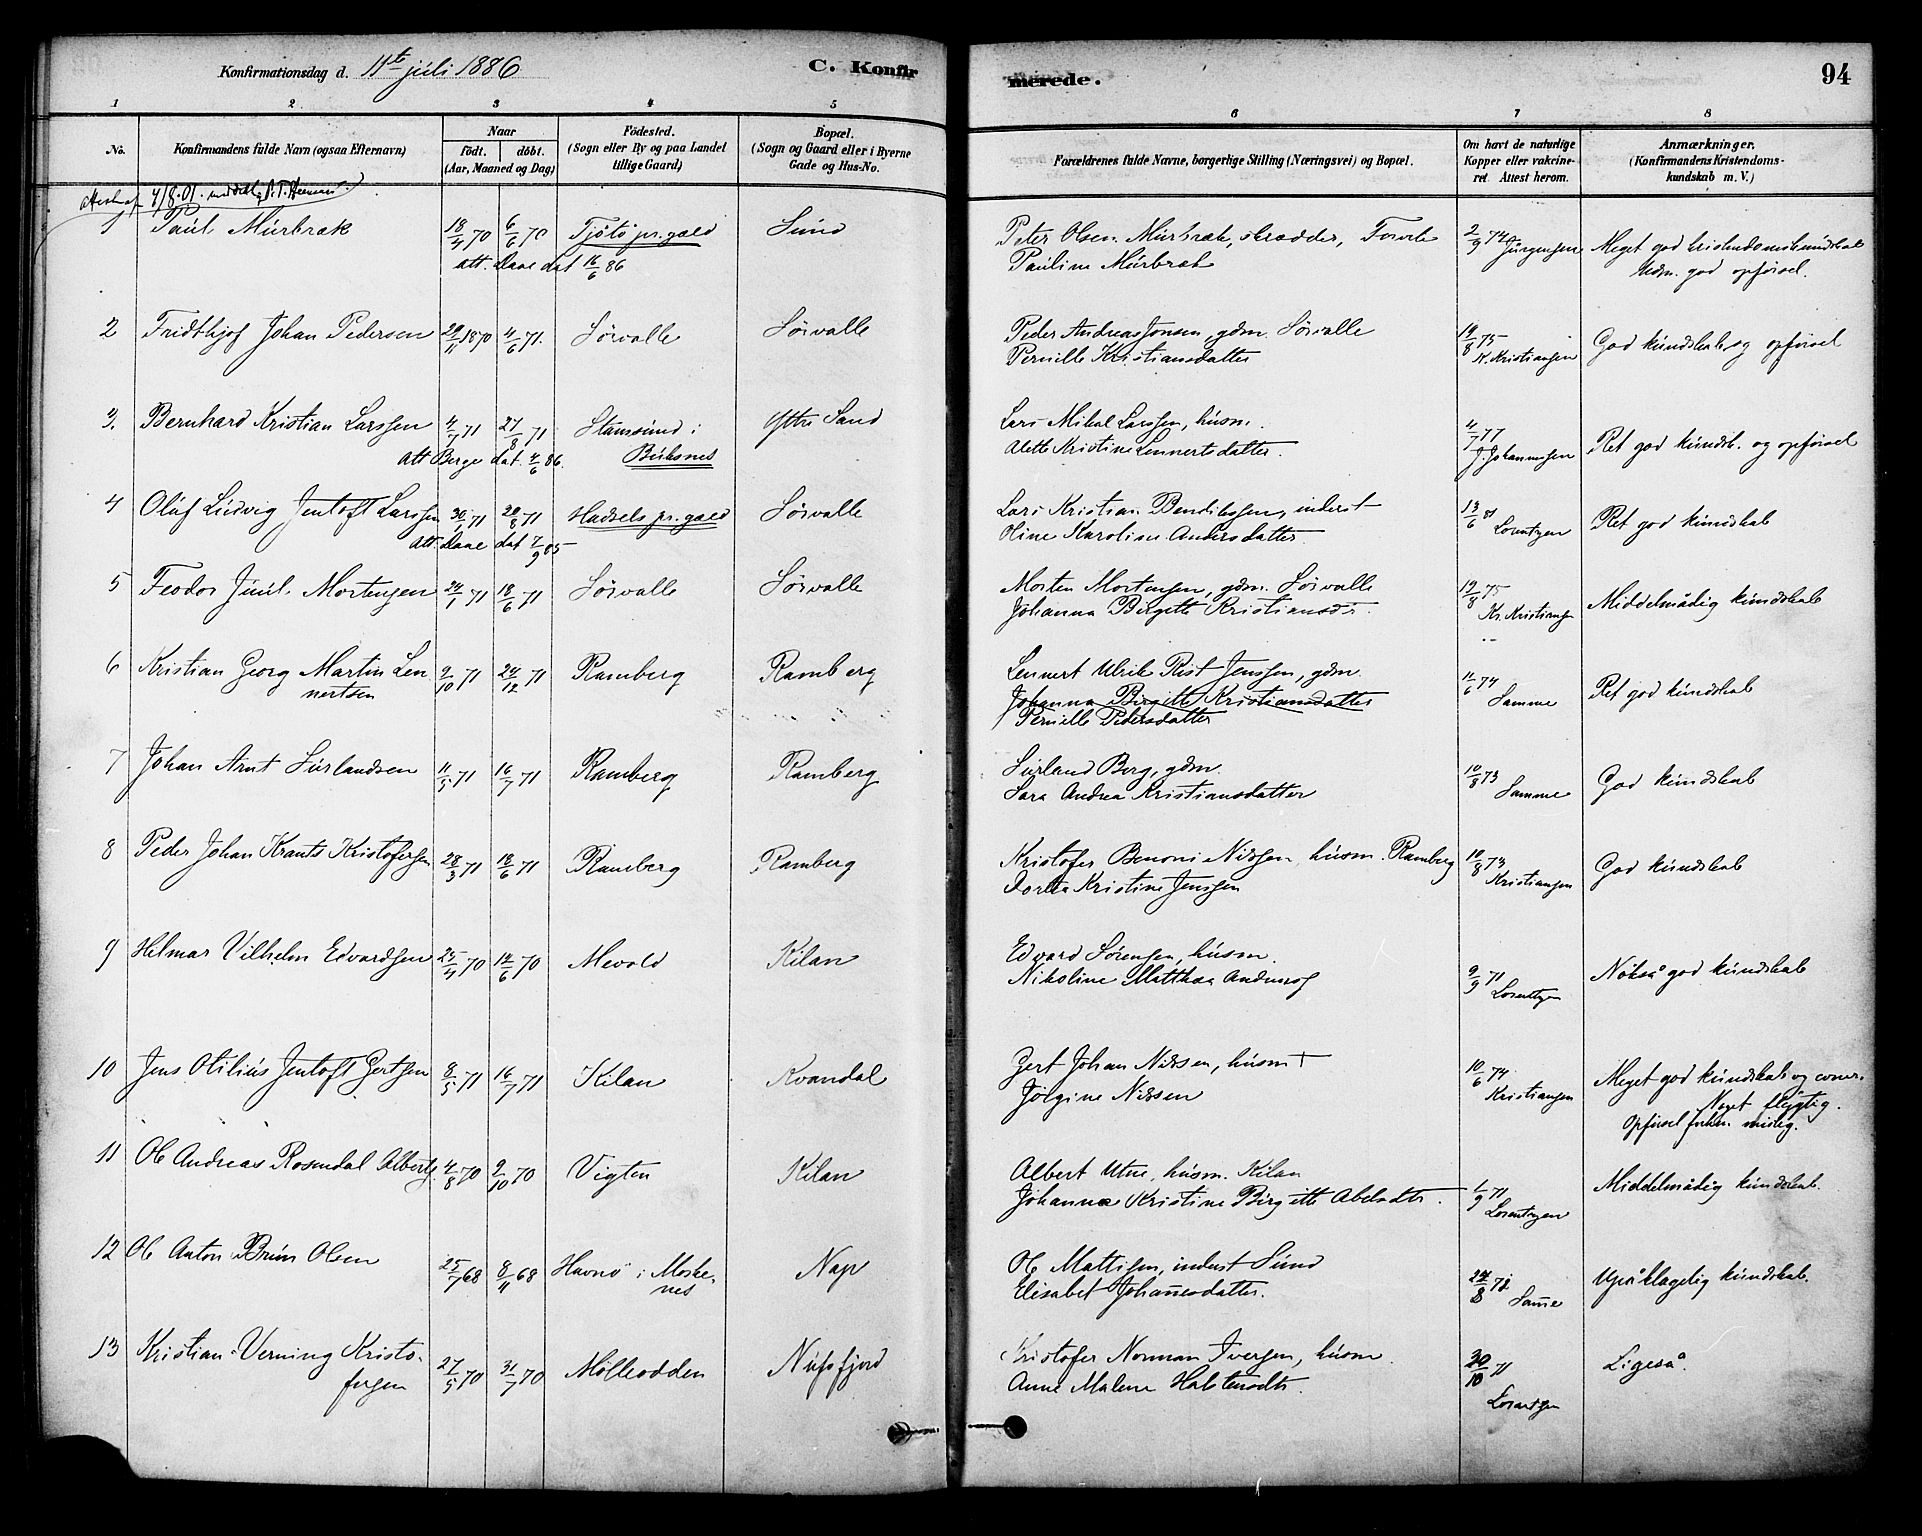 Konfirmationsdag d. 11te juli 1886
C. Konfirmerede.
94
1 2 3 4 5 6 7 8
No.
Konfirmandens fulde Navn (ogsaa Efternavn)
Naar
Födt. döbt.
(Aar, Maaned og Dag)
Födested.
(Sogn eller By og paa Landet tillige Gaard)
Bopæl.
(Sogn og Gaard eller i Byerne Gade og Hus-No.
Forældrenes fulde Navne, borgerlige Stilling (Næringsvei) og Bopæl.
Om havt de naturlige Kopper eller vakcineret. Attest herom.
Anmærkninger.
(Konfirmandens Kristendomskundskab m. V.)
1 Paul Mürbræk 18/4 70 6/6 70 Tjøtø pr.gæld Sund Peter Olsen Mürbræk, skrædder, 2/9 74 Jürgensen Meget god kristendomskundskab
att. Daae dat 16/6 86 Pauline Mürbræk Udm. god opførsel.
2 Fridthjof Johan Pedersen 20/11 1870 4/6 71. Sørvalle Sørvalle Peder Andreas Jonsen, gdm. Sørvalle 19/8 75 K. Kristiansen God kundskab og opførsel
Pernille Kristiansdatter
3. Bernhard Kristian Larssen 4/7 71 27/8 71 Stamsund i Yttre Sand Lars Mikal Larssen, husm. 4/7 77 J. Johannessen Ret god kundsk. og opførsel
Att Berge dat. 4/6 86. Buksnes Alette Kristine Lennertsdatter.
4 Oluf Ludvig Jentoft Larssen 30/1 71 20/8 71 Hadsels pr.gæld Sørvalle Lars Kristian Bendikssen, inderst 13/6 81 Lorentzen Ret god kundskab
Att. Daae dat 7/9 85 Oline Karoline Andersdatter
5 Feodor Juul Mortensen 24/1 71 18/6 71 Sørvalle Sørvalle Morten Mortensen, gdm. Sørvalle 19/8 75 Kr. Kristiansen Middelmådig kundskab
Johanna Birgitte Kristiansdr.
6 Kristian Georg Martin Lennertsen 9/10 71 24/12 71 Ramberg Ramberg Lennert Ulrik Rist Jenssen, gdm. 11/6 74 Samme Ret god kundskab
Johanna Birgitte Kristiansdatter
Pernille Pedersdatter
7 Johan Arnt Surlandsen 11/5 71 16/7 71 Ramberg Ramberg Surland Berg, gdm. 10/8 73 Samme God kundskab
Sara Andrea Kristiansdatter
8 Peder Johan Krants Kristofersen 28/3 71 18/6 71 Ramberg Ramberg Kristofer Benoni Nilssen, husm. Ramberg 10/8 73 Kristiansen God kundskab
Dortea Kristine Jenssen
9 Hilmar Vilhelm Edvardsen 25/4 70 12/6 70 Mevold Kilan Edvard Sørensen, husm. 9/9 71 Lorentzen Nøkså god kundskab
Nikoline Matthea
10 Jens Otilius Jentoft Gertsen 8/5 71 16/7 71 Kilan Kvandal Gert Johan Nilssen, husm † 10/6 74 Kristiansen Meget god kundskab og
Jørgine Nilssen Noget flygtig.
Opførsel mislig.
11 Ole Andreas Rosendal Alberts. 4/8 70 2/10 70 Vigten Kilan Albert Utne, husm. Kilan 1/9 71 Lorentzen Middelmådig kundskab.
Johanna Kristine Birgitte Abelsdtr.
12 Ole Anton Brun Olsen 25/7 68 8/11 68 Havnø i Moskenes Nap Ole Mattisen, inderst Sund 24/8 72 Samme Upåklagelig kundskab.
Elisabet Johannesdatter.
13 Kristian Verning Kristofersen 27/5 70 31/7 70 Mølleodden Nufsfjord Kristofer Norman Iversen, husm. 30/10 71 Lorentzen Ligeså.
Anne Malene Halstensdtr.